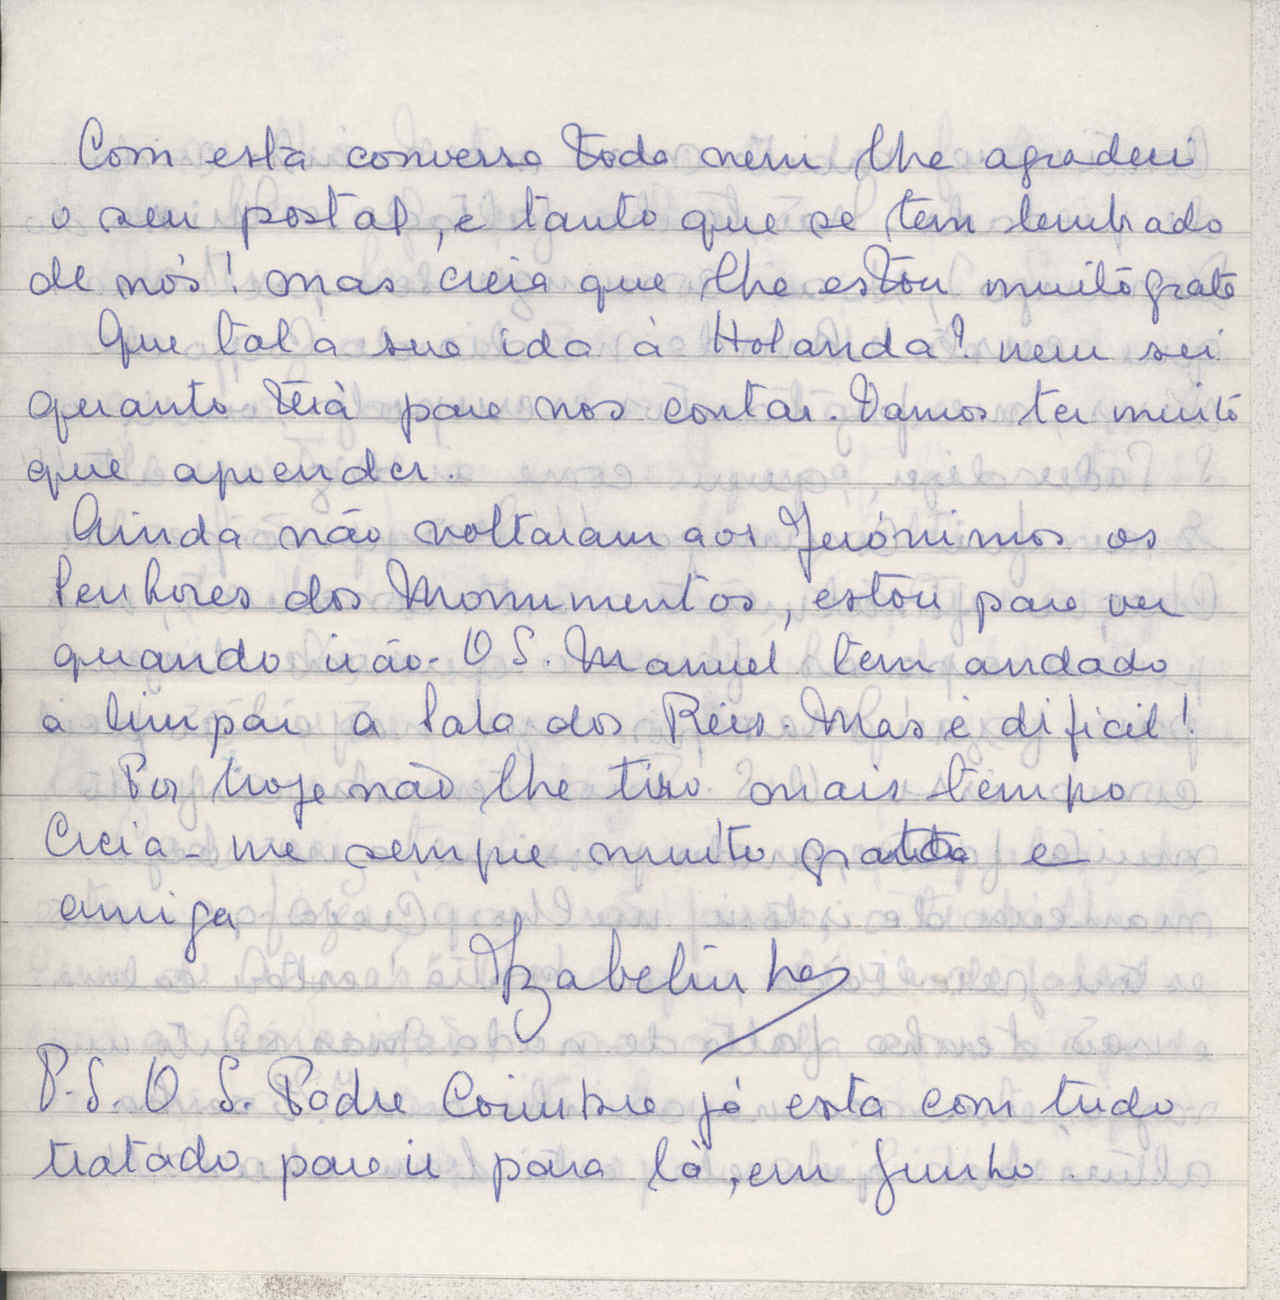 Com esta conversa toda nem lhe agradeci
o seu postal, e tanto que se tem lembrado
de nós! Mas creia que lhe estou muito grata
Que tal a sua ida à Holanda? nem sei
quanto terá para nos contar. Vamos ter muito
que aprender.
Ainda não voltaram aos Jerónimos os
Senhores dos Monumentos, estou para ver
quando irão. O S. Manuel tem andado
a limpar a Sala dos Reis. Mas é dificil!
Por hoje não lhe tiro mais tempo
Creia-me sempre muito grata e
amiga
Izabelinha
P.S. O S. Padre Coimbra já esta com tudo
tratado para ir para lá, em Junho.